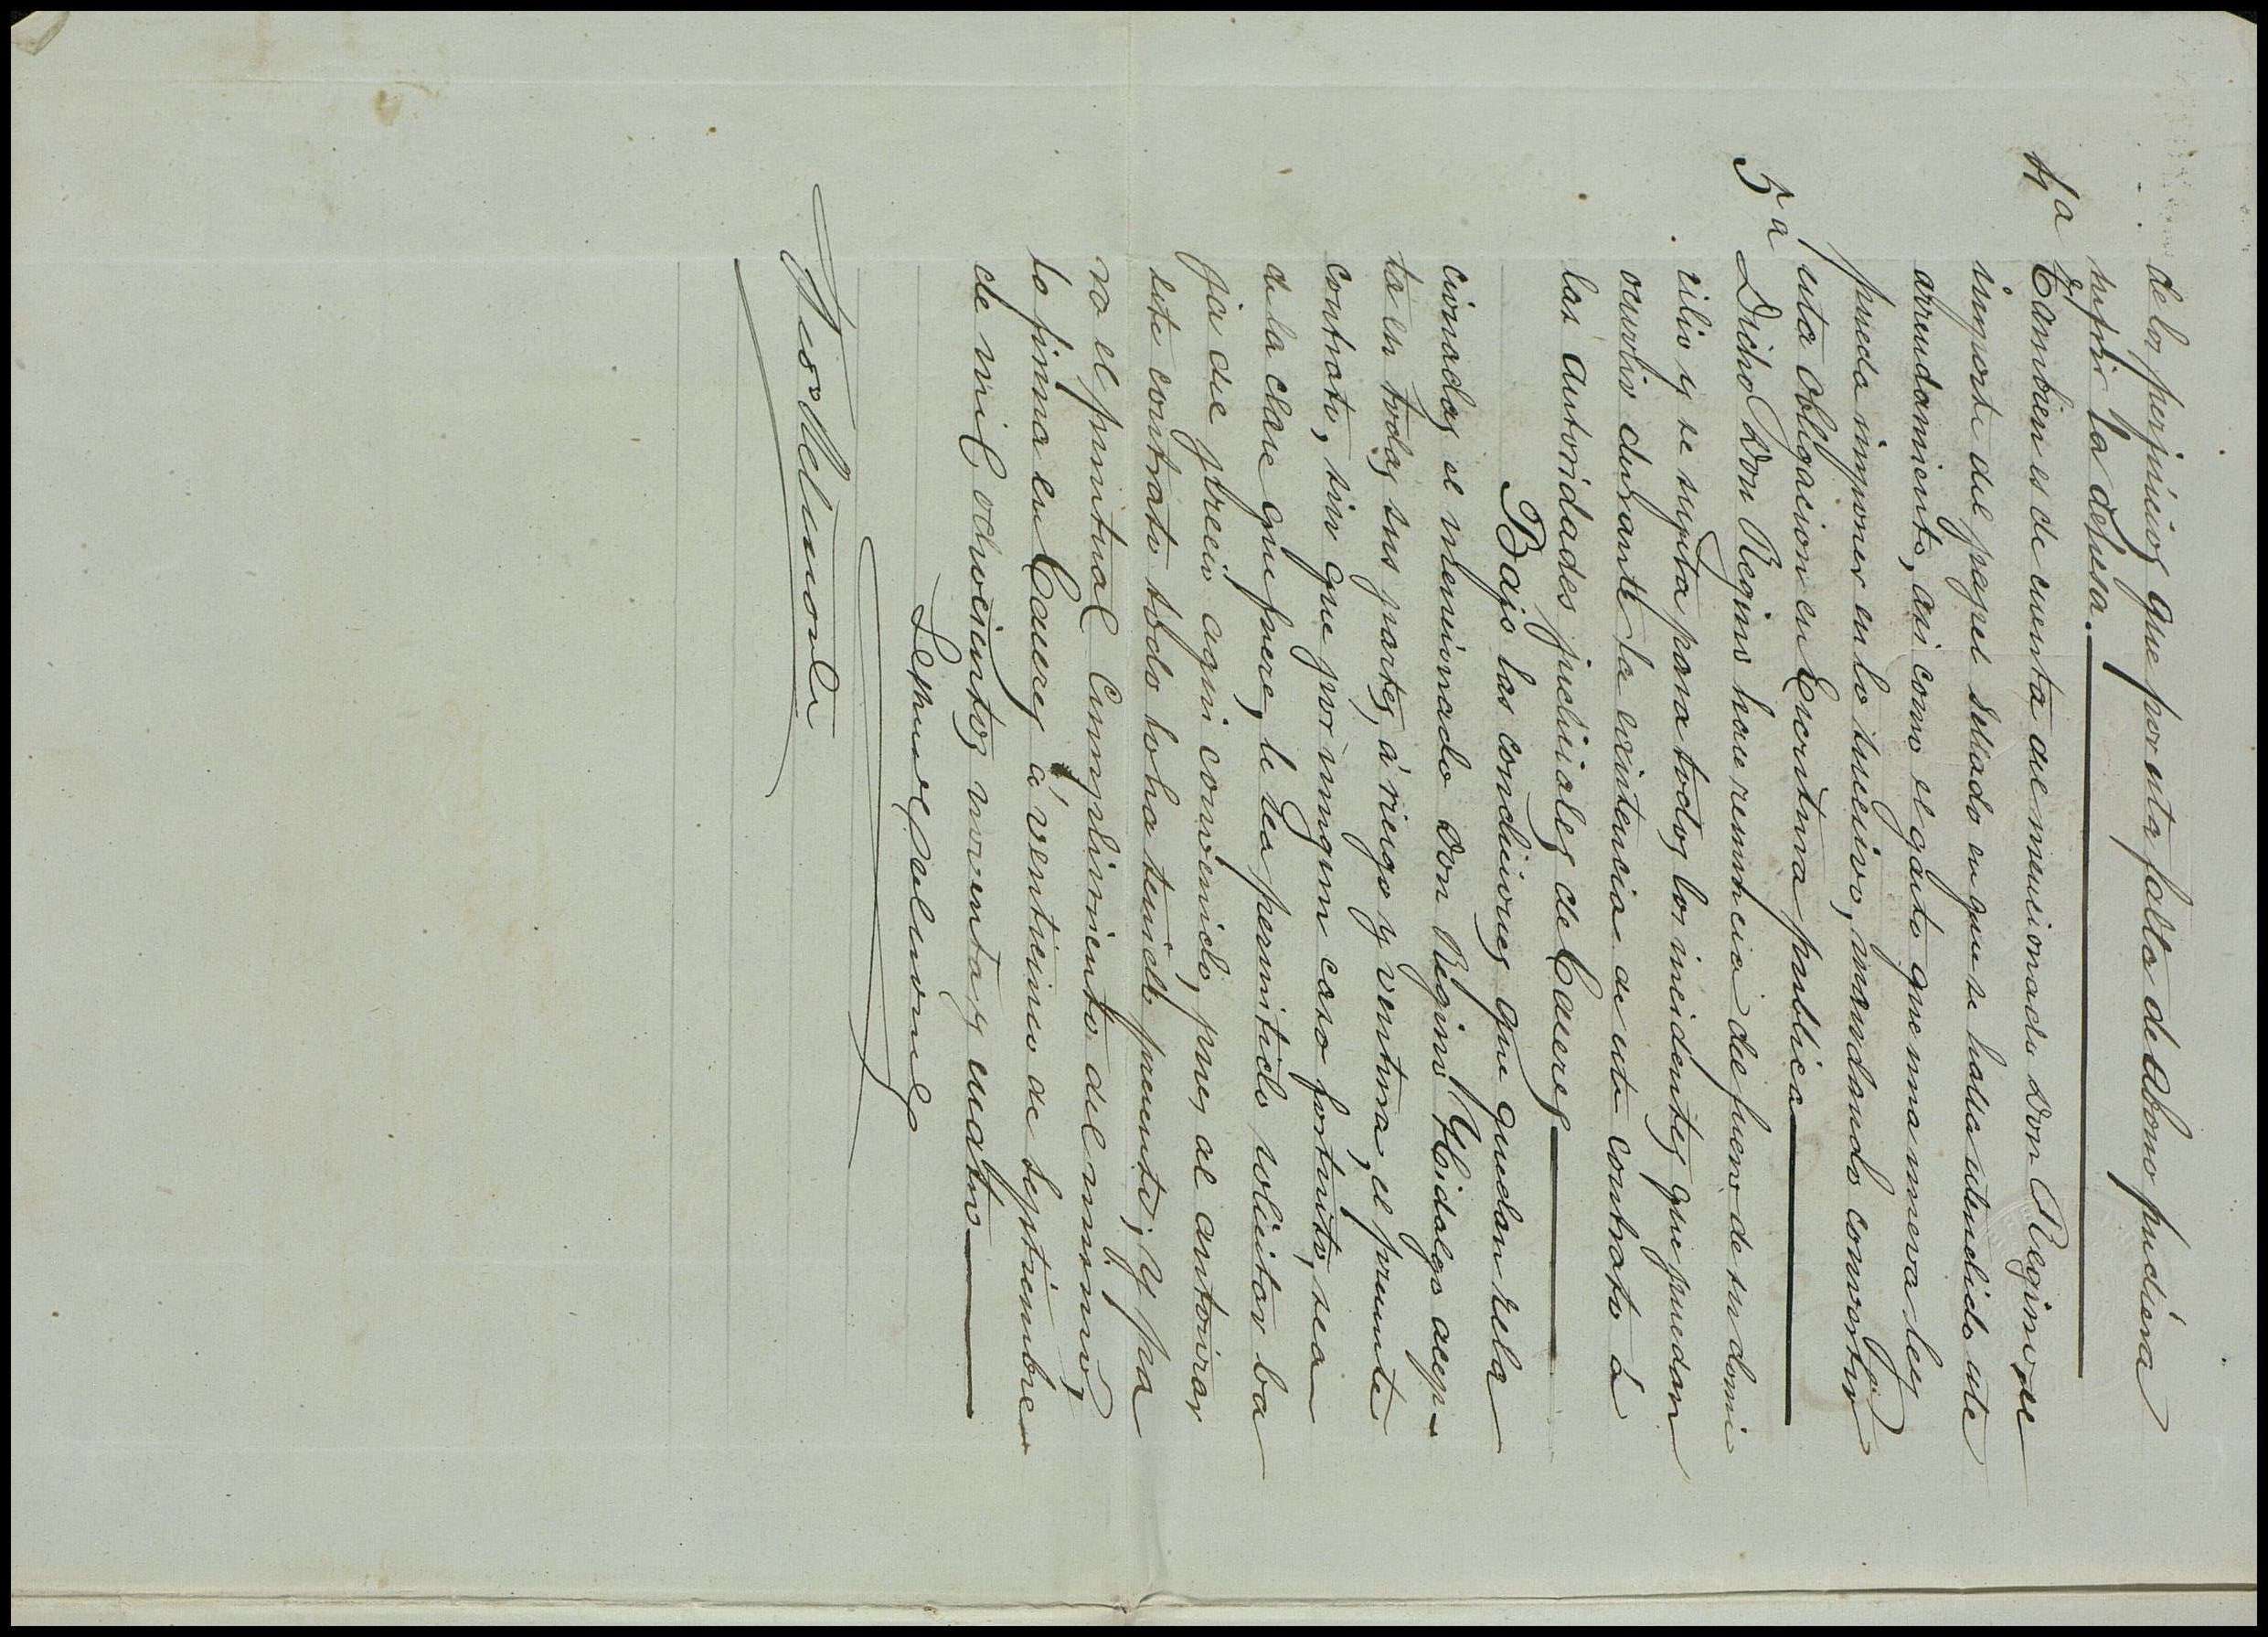 de los perjuicios que por esta falta de abono pudiera
sufrir la dehesa.
4a Tambien es de cuenta del mencionado Don Regino el
importe del papel sellado en que se halla estendido este
arrendamiento, asi como el gasto que una nueva ley
pueda imponer en lo sucesivo, mandando convertir
esta obligacion en Escritura publica
5a Dicho Don Regino hace renuncia del fuero de su domi
cilio y se sugeta para todos los incidentes que puedan
ocurrir durante la existencia de este contrato á
las autoridades judiciales de Caceres
Bajo las condiciones que quedan rela
cionadas el mencionado Don Regino Hidalgo acep-
ta en todas sus partes, á riesgo y ventura, el presente
contrato, sin que por ningun caso fortuito, sea
de la clase que fuere, le sea permitido solicitar ba
ja del precio aqui convenido, pues al autorizar
este contrato todo lo ha tenido presente; y pa
ra el puntual cumplimiento del mismo,
lo firma en Caceres á veinticinco de Septiembre
de mil ochocientos noventa y cuatro